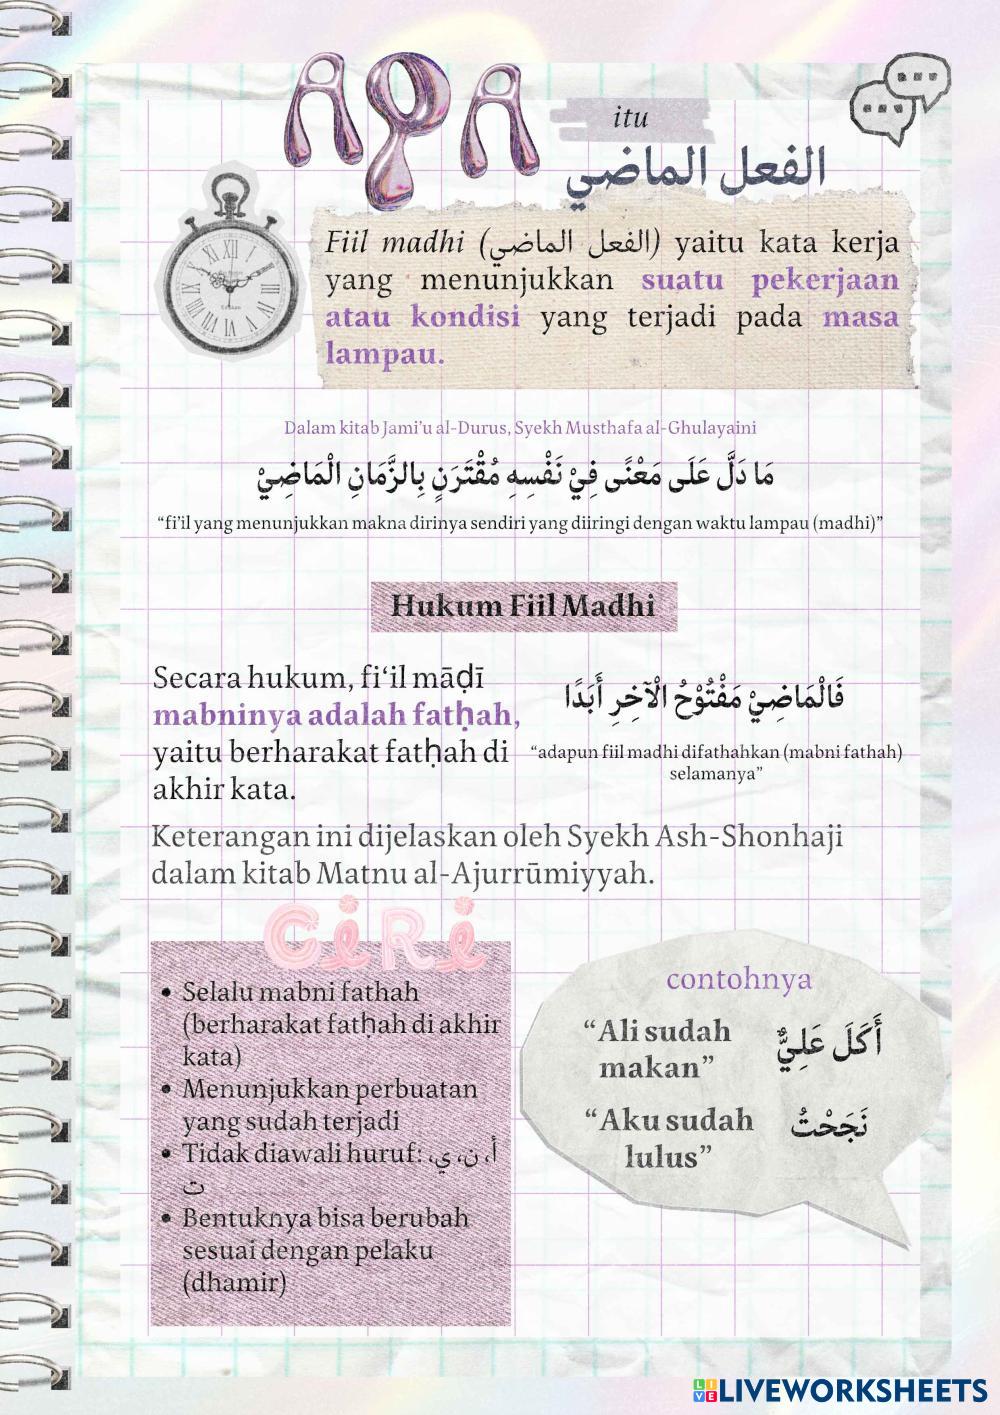 APA
itu
الفعل الماضي
Fiil madhi (الفعل الماضي) yaitu kata kerja
yang menunjukkan suatu pekerjaan
atau kondisi yang terjadi pada masa
lampau.
Dalam kitab Jami'u al-Durus, Syekh Musthafa al-Ghulayaini
مَا دَلَّ عَلَى مَعْنًى فِيْ نَفْسِهِ مُقْتَرَنٍ بِالزَّمَانِ الْمَاضِيْ
“fi'il yang menunjukkan makna dirinya sendiri yang diiringi dengan waktu lampau (madhi)”
Hukum Fiil Madhi
Secara hukum, fi‘il māḍī
mabninya adalah fatḥah,
yaitu berharakat fatḥah di
akhir kata.
فَالْمَاضِيْ مَفْتُوْحُ الْآخِرِ أَبَدًا
“adapun fiil madhi difathahkan (mabni fathah)
selamanya”
Keterangan ini dijelaskan oleh Syekh Ash-Shonhaji
dalam kitab Matnu al-Ajurrūmiyyah.
CiRi
• Selalu mabni fathah
(berharakat fatḥah di akhir
kata)
• Menunjukkan perbuatan
yang sudah terjadi
• Tidak diawali huruf: أ، ن، ي،
ت
• Bentuknya bisa berubah
sesuai dengan pelaku
(dhamir)
contohnya
“Ali sudah
makan”
أَكَلَ عَلِيٌّ
“Aku sudah
lulus”
نَجَحْتُ
LIVEWORKSHEETS